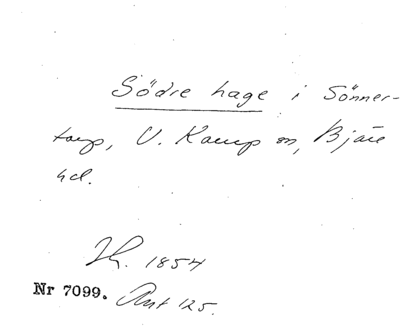 Södre hage i Sönner-
torp, V. Karup sn, Bjäre
hd.
Th. 1854
Nr 7099. Ant 125.